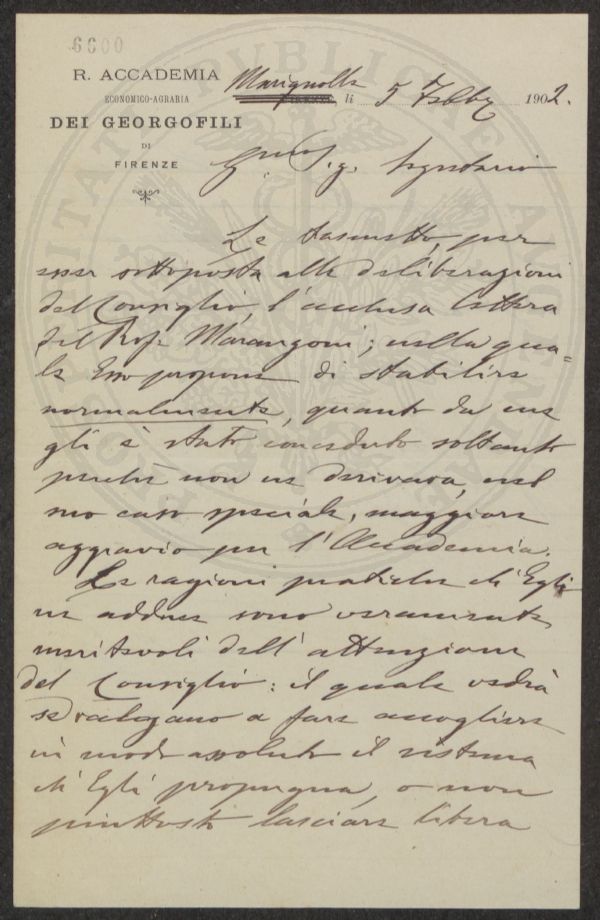 6600
R. ACCADEMIA
ECONOMICO-AGRARIA
DEI GEORGOFILI
DI
FIRENZE
Marignolle
FIRENZE, li 5 7mbre 1902.
Sig. Segretario
Le trasmetto, per
esser sottoposta alle deliberazioni
del Consiglio, l'acclusa lettera
del Prof. Marangoni; nella qua-
le Esso propone di stabilire
normalmente, quanto da me
gli è stato conceduto soltanto
perchè non ne derivava, nel
suo caso speciale, maggiore
aggravio per l'Accademia.
Le ragioni pratiche ch'Egli
ne adduce sono veramente
meritevoli dell'attenzione
del Consiglio: il quale vedrà
se valgano a fare accogliere
in modo assoluto il sistema
ch'Egli propugna, o non
piuttosto lasciare libera